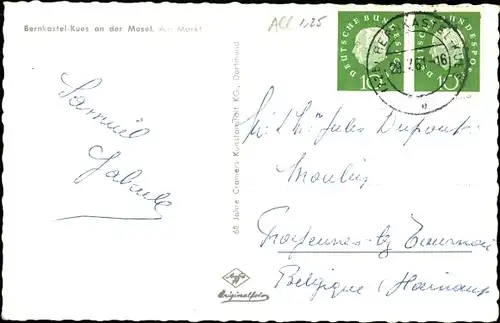 Bernkastel-Kues an der Mosel. Am Markt
All 1,25
DEUTSCHE BUNDESPOST
10
DEUTSCHE BUNDESPOST
10
BERNKASTEL-KUES
28. 7. 61-16
e
Samuel
M. & Mme Jules Dupont
Moulin
Froyennes-lez-Tournai
Belgique (Hainaut
65 Jahre Cramers Kunstanstalt KG., Dortmund
Agfa
Originalfoto